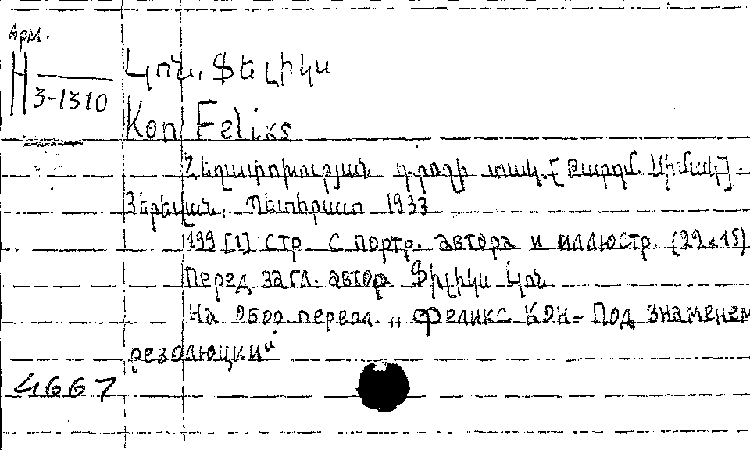 Арм.
H
3-1310
Կոն, Ֆելիկս
Kon Feliks
Հեղափոխության դրոշի տակ. [Թարգմ. Արմակ].
Յերեվան, Պետհրատ 1933
199 [1] стр. с портр. автора и иллюстр. (22х15)
Перед загл. автор Ֆիլիկս Կոն
На обор. первол. „Феликс Кон- Под знаменем
резолюцки"
4667